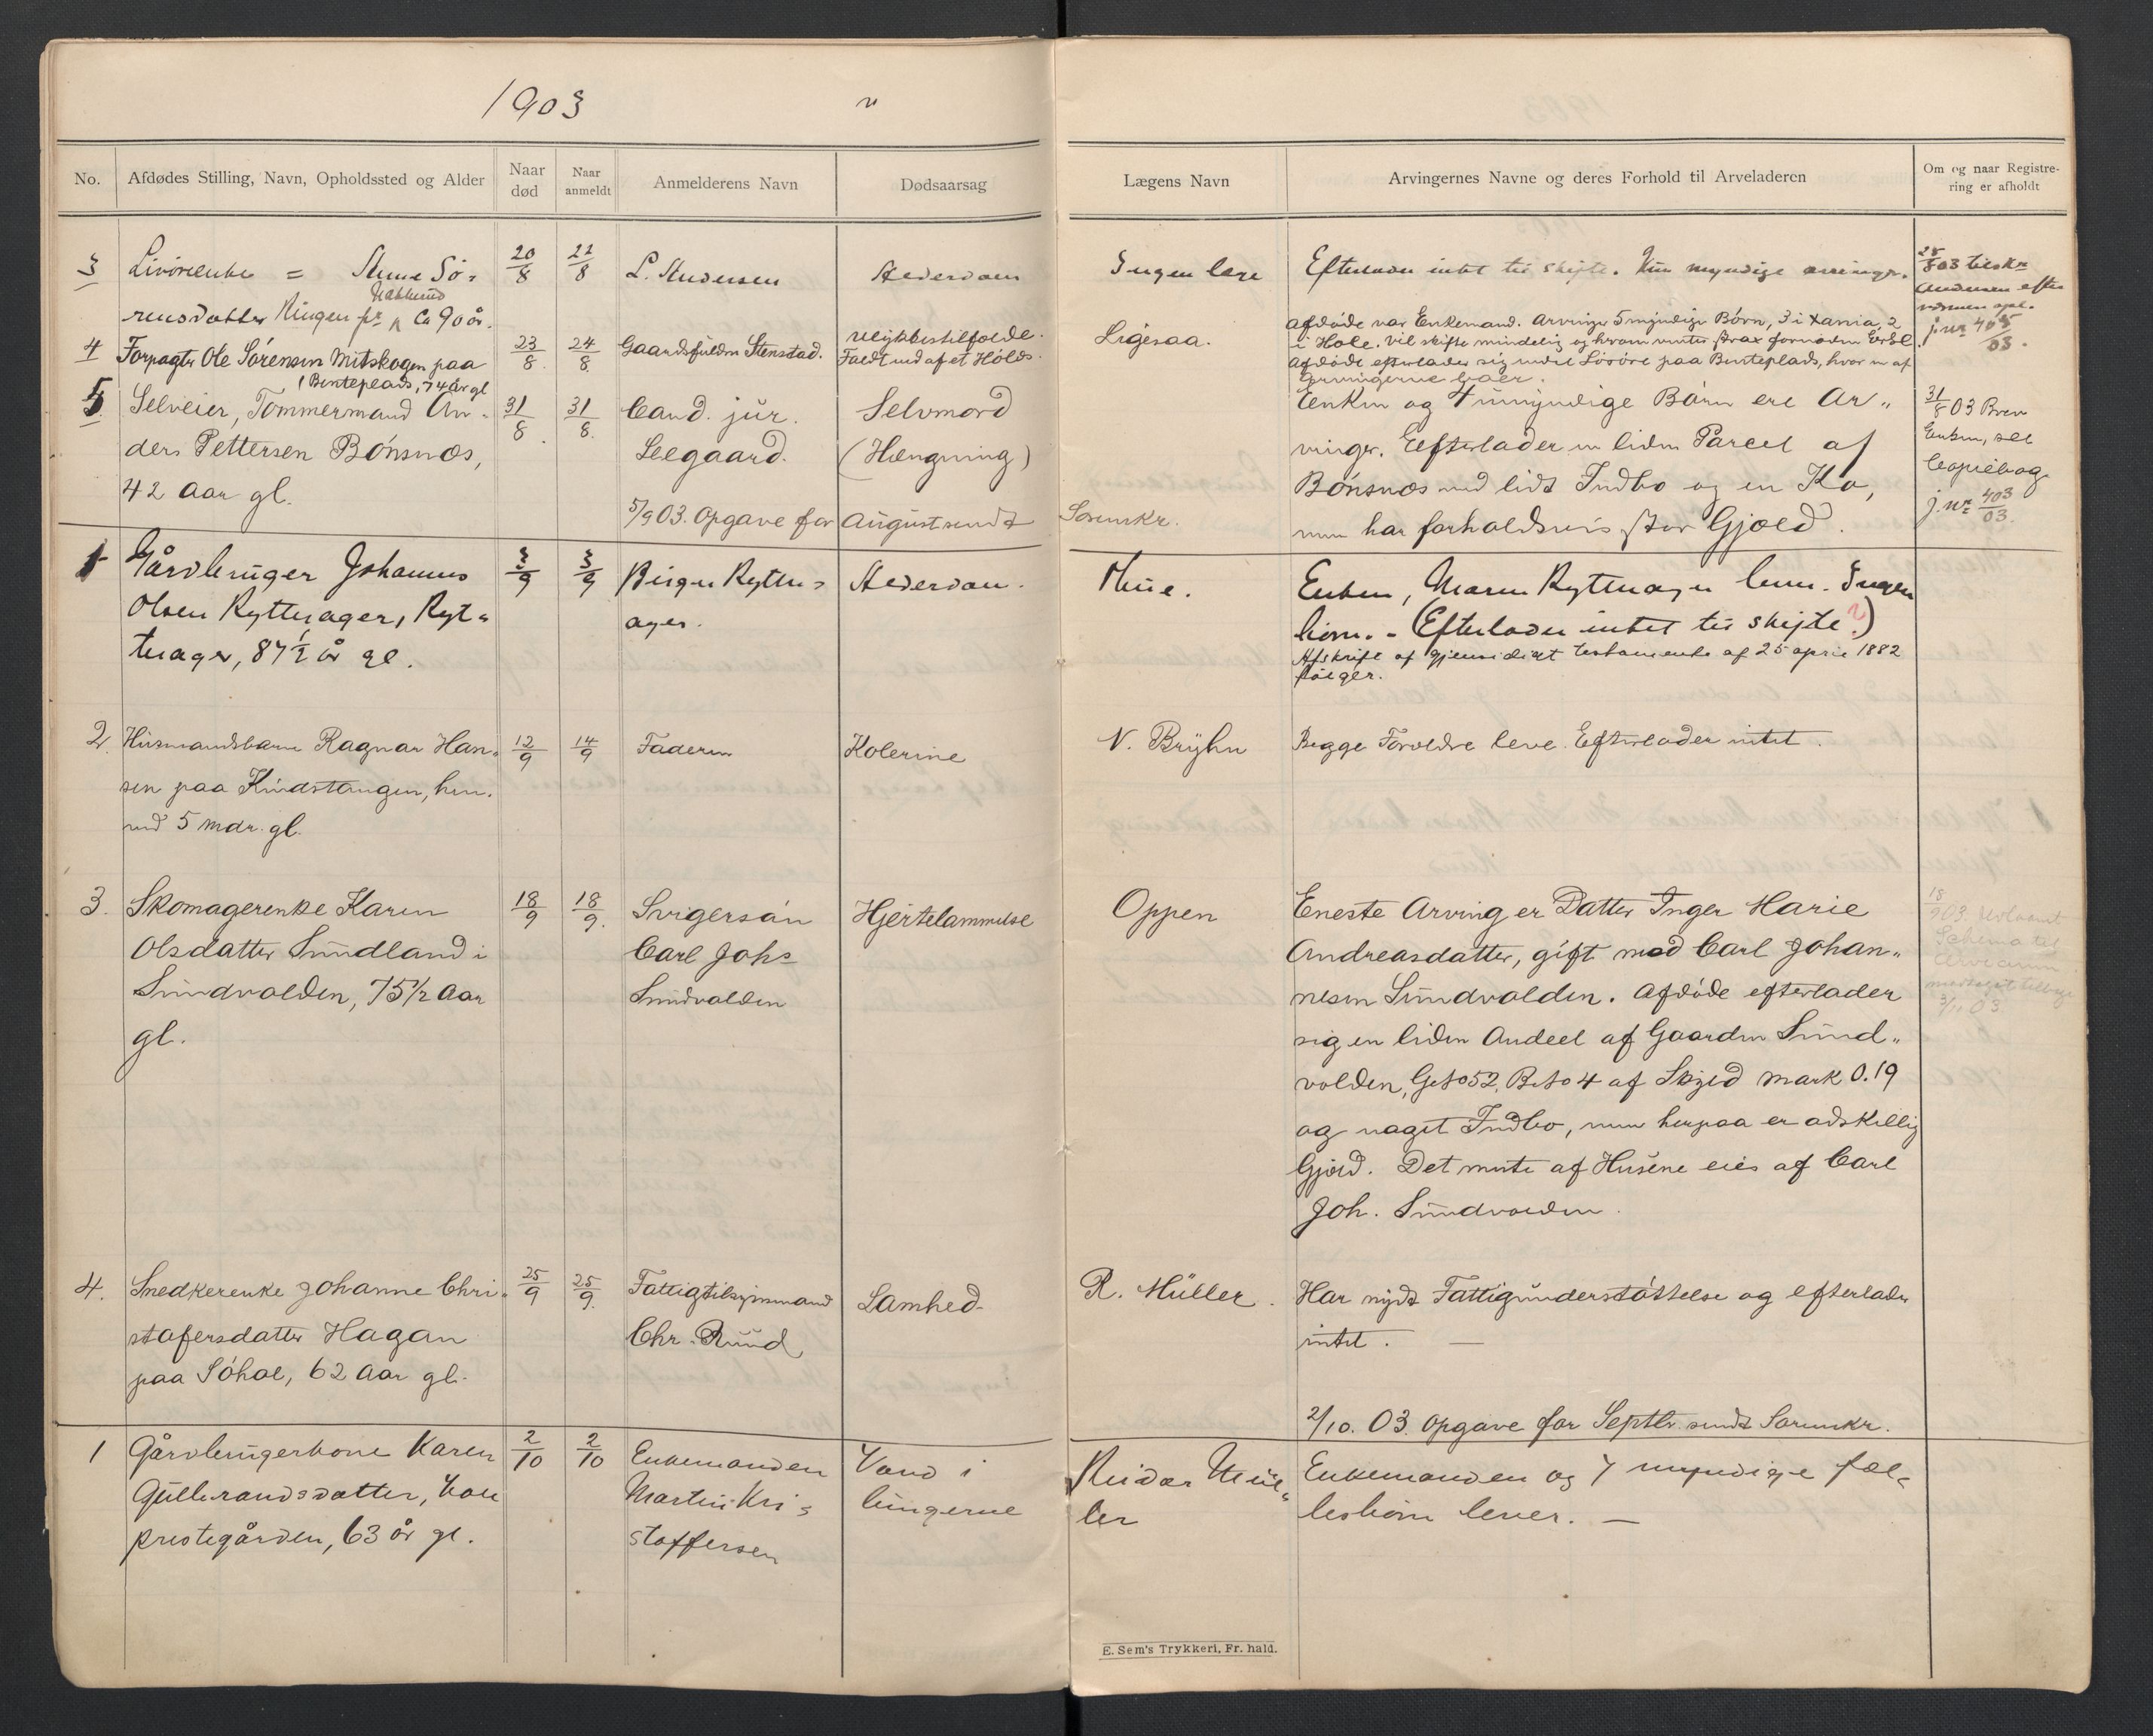 1903
No.
Afdødes Stilling, Navn, Opholdssted og Alder
Naar død
Naar anmeldt
Anmelderens Navn
Dødsaarsag
Lægens Navn
Arvingernes Navne og deres Forhold til Arveladeren
Om og naar Registre-
ring er afholdt
3
= Anne Sö=
rensdatter Ringen ca 90 år.
20/8
22/8
L. Andersen
Alderdom
Ingen læge
Efterlader intet til skifte. Kun myndige arvinger.
4
Forpagter Ole Sörensen Mitskogen paa
Benteplads, 74 år gl
23/8
24/8
Gaardsfuldm Stenstad.
Ulykkestilfælde.
Faldt ned af et
Ligesaa.
Afdöde var Enkemand. Arvinger 5 myndige Börn, 3 i Xania, 2
i Hole. Vil skifte mindelig og
Afdöde efterlader sig Lösöre paa Benteplads, hvor en af
Arvingerne boer.
j. nr 405/03.
5
Selveier, Tömmermand An-
ders Pettersen Bönsnæs,
42 Aar gl.
31/8
31/8
Cand. jur.
Leegaard.
Selvmord
(Hængning)
Enken og 4 umyndige Börn ere Ar"
vinger. Efterlader en liden Parcel af
Bönsnæs med lidt Indbo og en Ko,
men har forholdsvis stor Gjæld.
31/8 03 Brev
Enken, se
Copiebog
j. nr 403/03.
5/9 03. Opgave for August sendt Sorenskr.
1
Gårdbruger Johannes
Olsen Rytterager, Ryt=
terager, 87½ år gl.
3/9
3/9
Birger Rytter=
ager.
Alderdom.
Thue.
Enken, Maren Rytterager lever. Ingen
börn. - (Efterlader intet til skifte?)
Afskrift af gjensidigt testamente af 25 april 1882
fölger.
2.
Husmandsbarn Ragnar Han=
sen paa Kindstangen, hen.
ved 5 mdr. gl.
12/9
14/9
Faderen
Kolerine
N. Bryhn
Begge Forældre leve. Efterlader intet.
3.
Skomagerenke Karen
Olsdatter Sundland i
Sundvolden, 75½ Aar
gl.
18/9
18/9.
Svigersön
Carl Johs
Sundvolden
Hjertelammelse
Oppen
Eneste Arving er Datter Inger Marie
Andreasdatter, gift med Carl Johan"
nesen Sundvolden. Afdöde efterlader
sig en liden Andeel af Gaarden Sund"
volden, Gno 52, Bno 4 af Skyld mark 0.19
og noget Indbo, men herpaa er adskillig
Gjæld. Det meste af Husene eies af Carl
Joh. Sundvolden.
18/9 03
Schema til
tilbage
3/11 03
4.
Snedkerenke Johanne Chri-
stofersdatter Hagan
paa Söhol, 62 Aar gl.
25/9
25/9.
Fattigtilsynsmand
Chr. Ruud
Lamhed
R. Müller.
Har nydt Fattigunderstöttelse og efterlader
intet. —
2/10. 03. Opgave for Septbr. sendt Sorenskr.
1
Gårdbrugerkone Karen
Gulbrandsdatter, Hole
prestegården, 63 år gl.
2/10
2/10
Enkemanden
Martin Kri=
stoffersen
Vand i
lungerne
Reidar Mül=
ler
Enkemanden og 7 myndige fæl=
lesbörn lever. —
E. Sem's Trykkeri, Fr. hald.